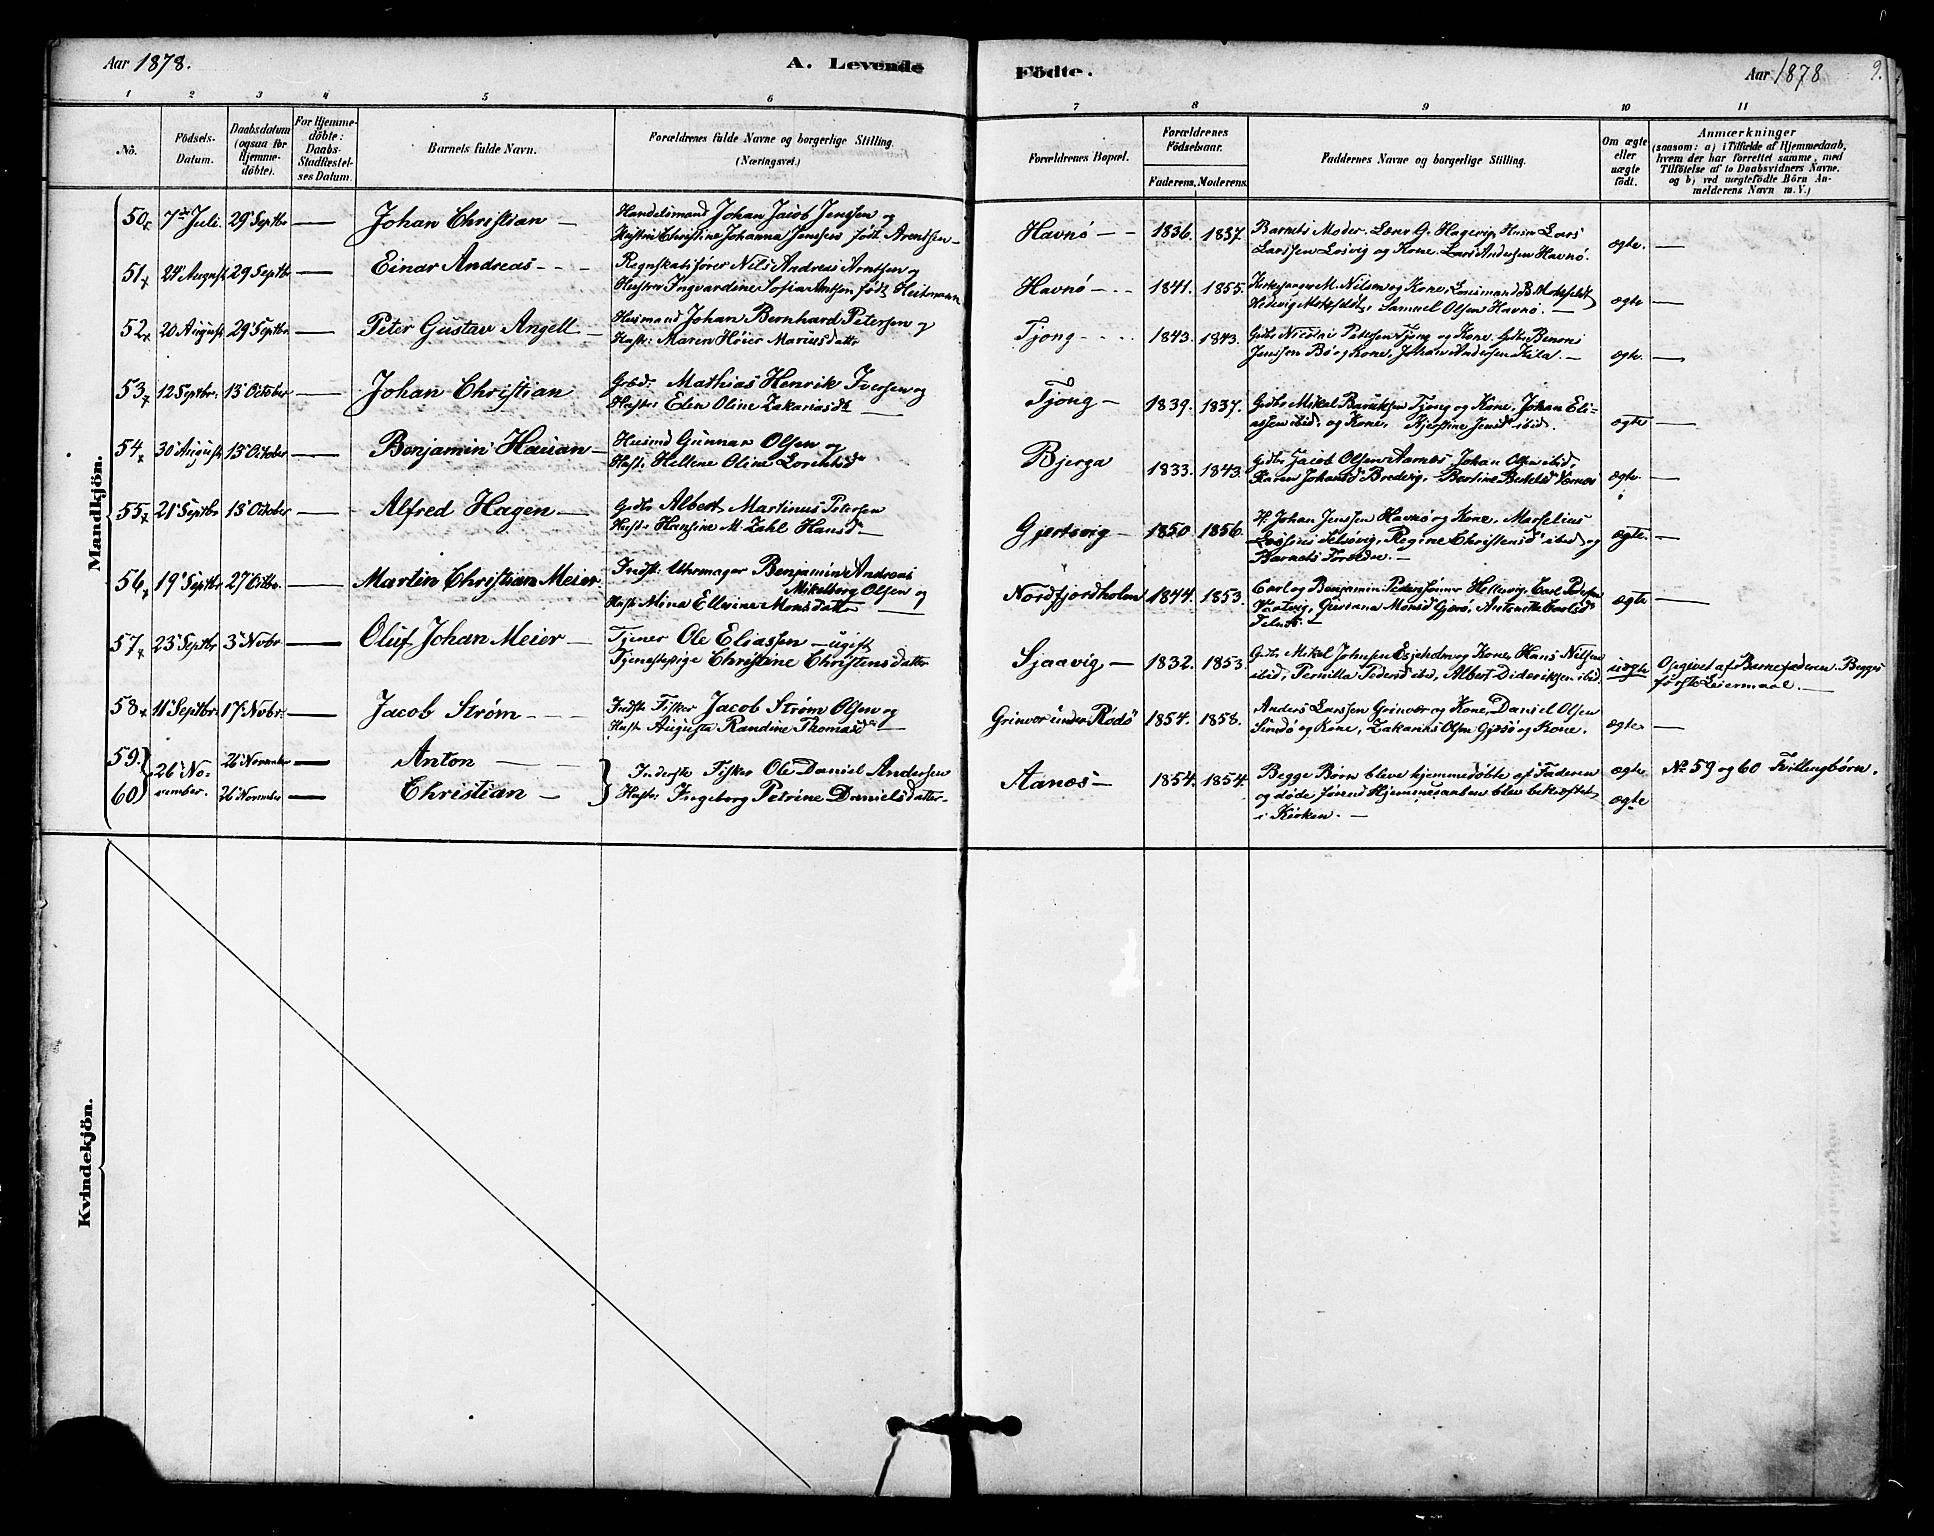 Aar 1878.
A. Levende
Födte.
Aar 1878
9.
1 2 3 4 5 6 7 8 9 10 11
No.
Födsels-
Datum.
Daabsdatum
(ogsaa for
Hjemme-
döbte).
For Hjemme-
döbte:
Daabs-
Stadfæstel-
ses Datum.
Barnets fulde Navn.
Forældrenes fulde Navne og borgerlige Stilling.
(Næringsvei.)
Forældrenes Bopæl.
Forældrenes
Födselsaar.
Faderens. Moderens.
Faddernes Navne og borgerlige Stilling.
Om ægte
eller
uægte
födt.
Anmærkninger
(saasom: a) i Tilfælde af Hjemmedaab,
hvem der har forrettet samme, med
Tilföielse af to Daabsvidners Navne.
og b) ved uægtefödte Börn An-
melderens Navn m. V.)
Mandkjön.
50 7de Juli. 29 Septbr — Johan Christian — Handelsmand Johan Jacob Jenssen og
Hustru Christine Johanna Jenssen født Arentsen —
Havnø — 1836. 1837. Barnets Moder. G. Hagevig, Lars
Larssen og Kone. Lars Andersen Havnø. ægte. —
51 24 August 29 Septbr — Einar Andreas — Regnskabsfører Nils Andreas Arntsen og
Hustru Ingvardine Sofia Arntsen født Heitmann
Havnø — 1841. 1855. Kirkesanger M. Nilsen og Kone, Lensmand B. Moksfeldt
Hedvig Moksfeldt, Samuel Olsen Havnø. — ægte —
52 20 August 29 Septbr — Peter Gustav Angell — Husmand Johan Bernhard Petersen og
Hustr: Maren Høier Mariusdatt.
Tjong — 1843. 1843. Gdbr Nicolai Petersen Tjong og Kone. Gdbr Benoni
Jenssen Bø og Kone, Johan Andersen Kila — ægte. —
53 12 Septbr. 13 October — Johan Christian Gbrd: Mathias Henrik Iversen og
Hustr: Elen Oline Zakariasdt —
Tjong — 1839. 1837. Gdbr Mikal Tjong og Kone, Johan Eli-
assen ibid. og Kone, Kjerstine Jensd ibid. ægte —
54 30 August 13 October — Benjamin Hauan — Husmd Gunnar Olsen og
Hustr: Hellene Oline Lorentsd
Bjerga 1833. 1843. Gdbr Jacob Olsen Aanæs Johan Olsen ibid,
Karen Johansd Bredvig, Bertine ægte. —
55 21 Septbr 13 October — Alfred Hagen — Gdbr Albert Martinus Petersen
Hustr: Hansine M. Zahl Hansd —
Gjertsvig — 1850. 1856. H. Johan Jenssen Havnø og Kone. Marselius
Regine Christensd ibid og
Barnets Forældre. — ægte. —
56 19 Septbr 27 Octbr. — Martin Christian Meier Indst: Uhrmager Benjamin Andreas
Mikelborg Olsen og
Hustr Mina Ellevine Monsdatt —
Nordfjordholm 1844. 1853. Carl og Benjamin Pedersønner Hellervig, Carl Pedersen
Gusiana Monsd Gjerø, Antonette Carlsd
Telnes. — ægte —
57 23 Septbr 3 Nobr — Oluf Johan Meier — Tjener Ole Eliassen — ugift
Tjenestepige Christine Christensdatter
Sjaavig — 1832. 1853. Gdbr Mikal Johnsen Esjeholm og Kone, Hans Nilsen
ibid, Pernilla Pedersd ibid, Albert Dideriksen ibid. uægte Opgivet af Barnefaderen. Begges
første Leiermaal. —
58 11 Septbr. 17 Nobr: — Jacob Strøm — Indst. Fisker Jacob Strøm Olsen og
Hust Augusta Randine Thomasd —
Grinver under Rødø 1854. 1858. Anders Larssen Grinver og Kone, Daniel Olsen
Sundø og Kone, Zakarias Olsen Gjerø og Kone. ægte. —
59. 26 No- 26 November — Anton — Inderste Fisker Ole Daniel Andersen
60 vember. 26 November — Christian — Hustr: Ingeborg Petrine Danielsdatter —
Aanæs — 1854. 1854. Begge Børn bleve hjemmedøbte af Faderen
og døde førend Hjemmedaaben blev bekræftet
i Kirken. — ægte
ægte
No 59 og 60 Tvillingbørn.
Kvindekjön.